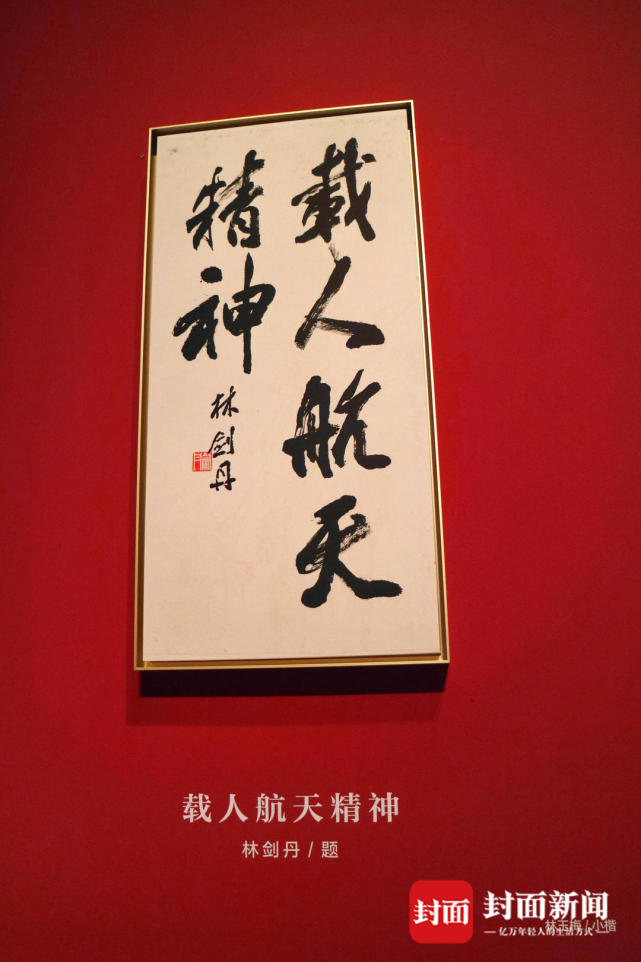 載人航天
精神
林剑丹
载人航天精神
林剑丹 / 题
封面
封面新闻
亿万年轻人的生活方式
林玉梅 / 小楷